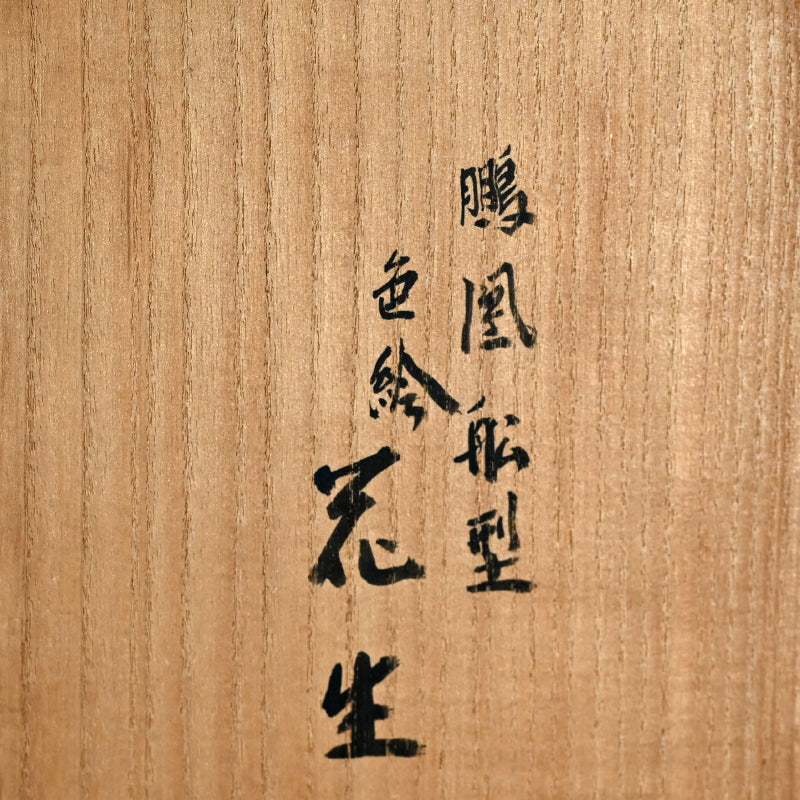 鵬凰船型
色絵
花生